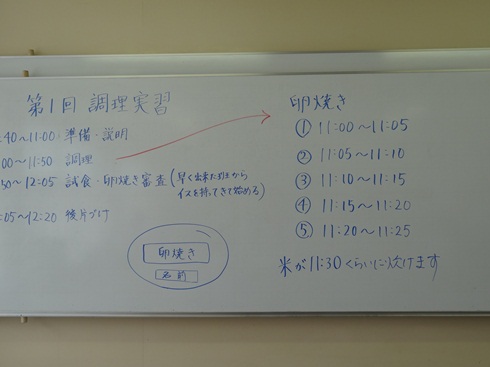 第1回 調理実習
:40〜11:00:準備・説明
:00〜11:50 調理
:50〜12:05 試食・卵焼き審査(早く出来た班から
イスを持ってきて始める)
:05〜12:20 後片づけ
卵焼き
名前
卵焼き
① 11:00〜11:05
② 11:05〜11:10
③ 11:10〜11:15
④ 11:15〜11:20
⑤ 11:20〜11:25
米が11:30くらいに炊けます